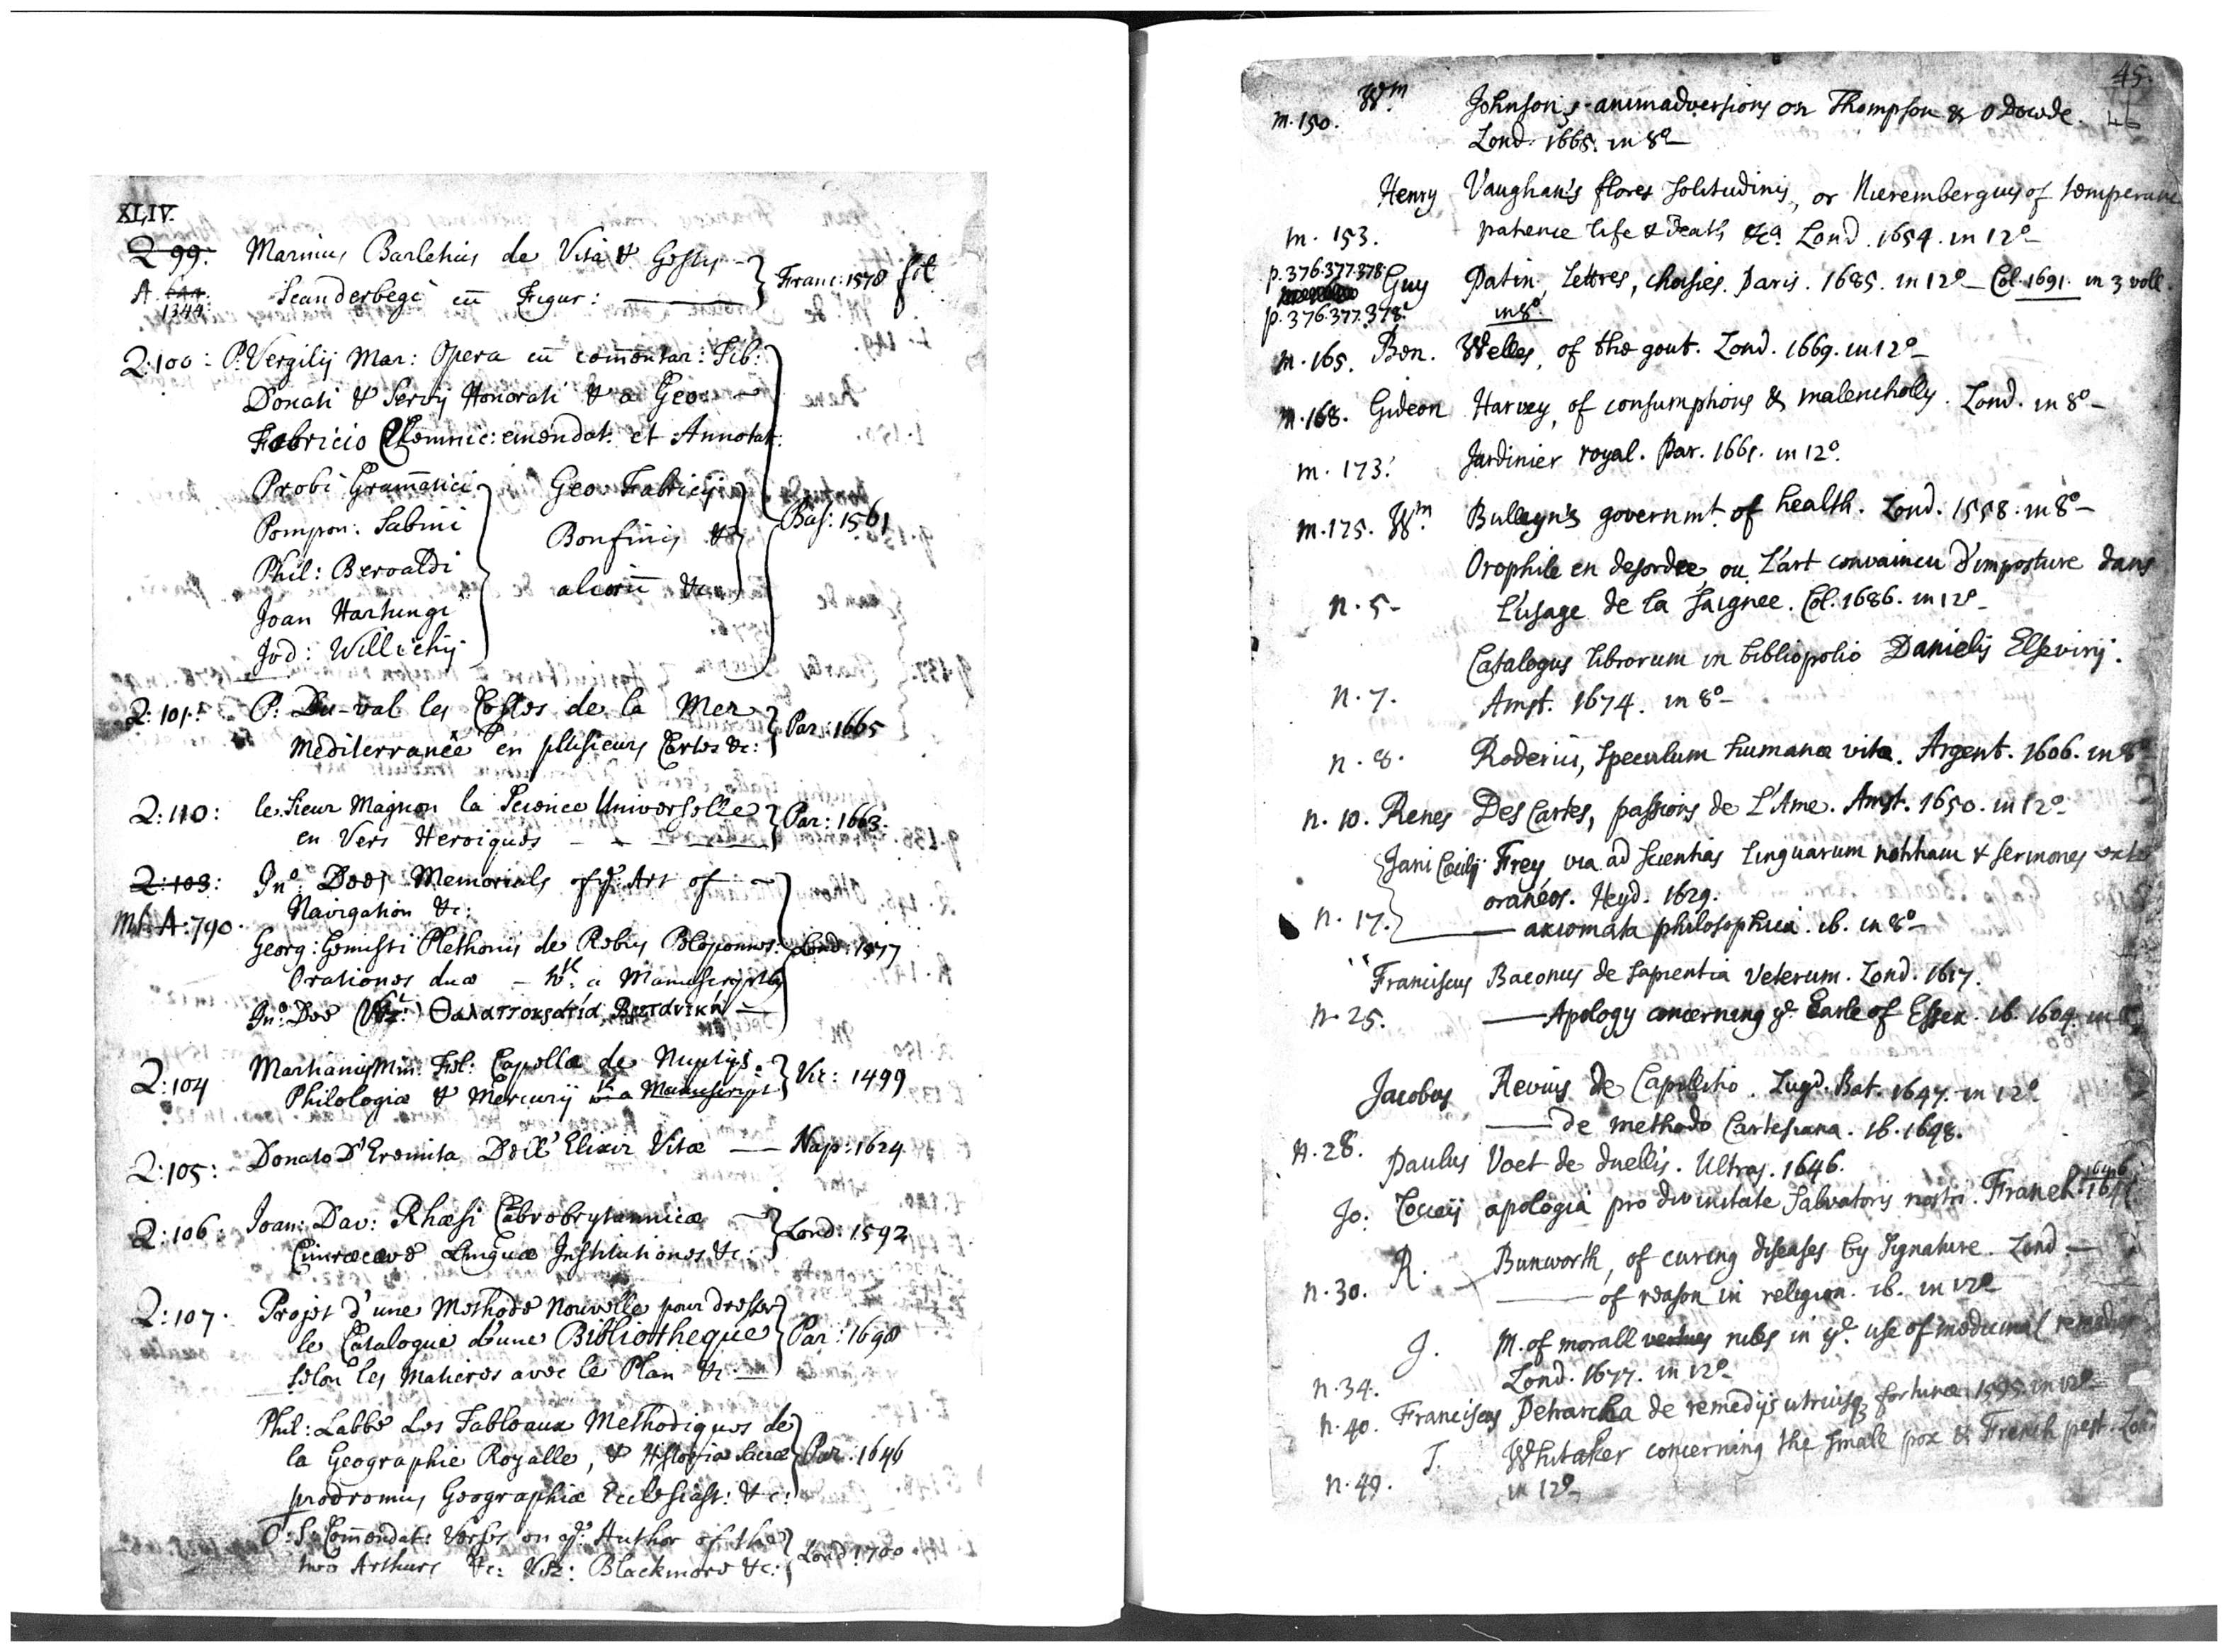 XLIV.
Q 99: Marinus Barletius de Vita & Gestis
A. 1344. Scanderbegi cū Figur: Franc: 1578 fol
Q: 100: P. Vergilij Mar: Opera cū com̄entar: Tib:
Donati & Servij Honorati & a Geo:
Fabricio Chemnic: emendat. et Annotat:
Probi Gram̄atici Geo Fabricij
Pompon: Sabini Bas: 1561
Phil: Beroaldi Bonfinis &
Joan Hartungi aliorū &c
Jod: Willichij
Q: 101: P. Du-val les Costes de la Mer
Mediterranée en plusieurs Cartes &c: Par: 1665
Q: 110: le Sieur Magnon la Science Universelle
en Vers Heroiques Par: 1663.
Q: 103: Jno. Dees Memorials of ye Art of
Navigation &c:
Ms A: 790. Georg: Gemisti Plethonis de Rebus Peloponnes: Lond: 1577
Orationes duæ - wth a Manuscript by
Jno: Dee (Viz:) Θαλαττοκρατία Βρετανική
Q: 104 Martianus Min: Fel: Capella de Nuptijs
Philologiæ & Mercurij wth a Manuscript Vic: 1499
Q: 105: Donato D'Eremita Dell' Elixir Vitæ — Nap: 1624
Q: 106 Joan: Dav: Rhæsi Cambrobrytannicæ
Cymræcæve Linguæ Institutiones &c: Lond: 1592
Q: 107. Projet d'une Methode Nouvelle pour dresser
le Catalogue d'une Bibliotheque Par: 1698
selon les Matieres avec le Plan &c
Phil: Labbé Les Tableaux Methodiques de
la Geographie Royalle, & Historiæ sacræ Par: 1646
prodromus Geographiæ Ecclesiast: &c:
O: S: Com̄endat: Verses on ye Author of the
two Arthurs &c: Viz: Blackmore &c: Lond 1700
45.
46
m. 150. Wm Johnson's animadversions on Thompson & O Dowde.
Lond. 1665. in 8o
Henry Vaughan's flores solitudinis, or Nierembergius of temperance
m. 153. patience life & death &ca. Lond. 1654. in 12o
p. 376.377.378 Guy Patin, Lettres, choisies. Paris. 1685. in 12o — Col. 1691. in 3 voll.
p. 376.377.378. in 8o.
m. 165. Ben. Welles, of the gout. Lond. 1669. in 12o
m. 168. Gideon Harvey, of consumptions & malencholly. Lond. in 8o
m. 173. Jardinier royal. Par. 1661. in 12o.
m. 175. Wm. Bulleyn's governmt. of health. Lond. 1558. in 8o
Orophile en desordre, ou L'art convaincu d'imposture dans
n. 5 L'usage de la saignée. Col. 1686. in 12o
Catalogus librorum in bibliopolio Danielis Elsevirij.
n. 7. Amst. 1674. in 8o
n. 8. Rodericus, speculum humanæ vitæ. Argent. 1606. in 8o
n. 10. Renes Des Cartes, passions de L'Ame. Amst. 1650. in 12o
Jani Cæcilij Frey, via ad scientias linguarum notitiam & sermones extem
oraneos. Heyd. 1629.
n. 17. — axiomata philosophica. ib. in 8o
Franciscus Baconus de sapientia Veterum. Lond. 1617.
n. 25. — Apology concerning ye Earle of Essex. ib. 1604. in 8o
Jacobus Revius de Capillitio. Lugd. Bat. 1647. in 12o
— de methodo Cartesiana. ib. 1648.
n. 28. Paulus Voet de duellis. Ultraj. 1646.
Jo: Cocceij apologia pro divinitate salvatoris nostri. Franek. 1646
R. Bunworth, of curing diseases by signature. Lond —
n. 30. — of reason in religion. ib. in 12o
J. M. of morall vertues rules in ye use of medicinal remedies
n. 34. Lond. 1677. in 12o
n. 40. Franciscus Petrarcha de remedijs utriusq; fortunæ. 1595. in 12o
T. Whitaker concerning the small pox & French pest. Lond
n. 49. in 12o